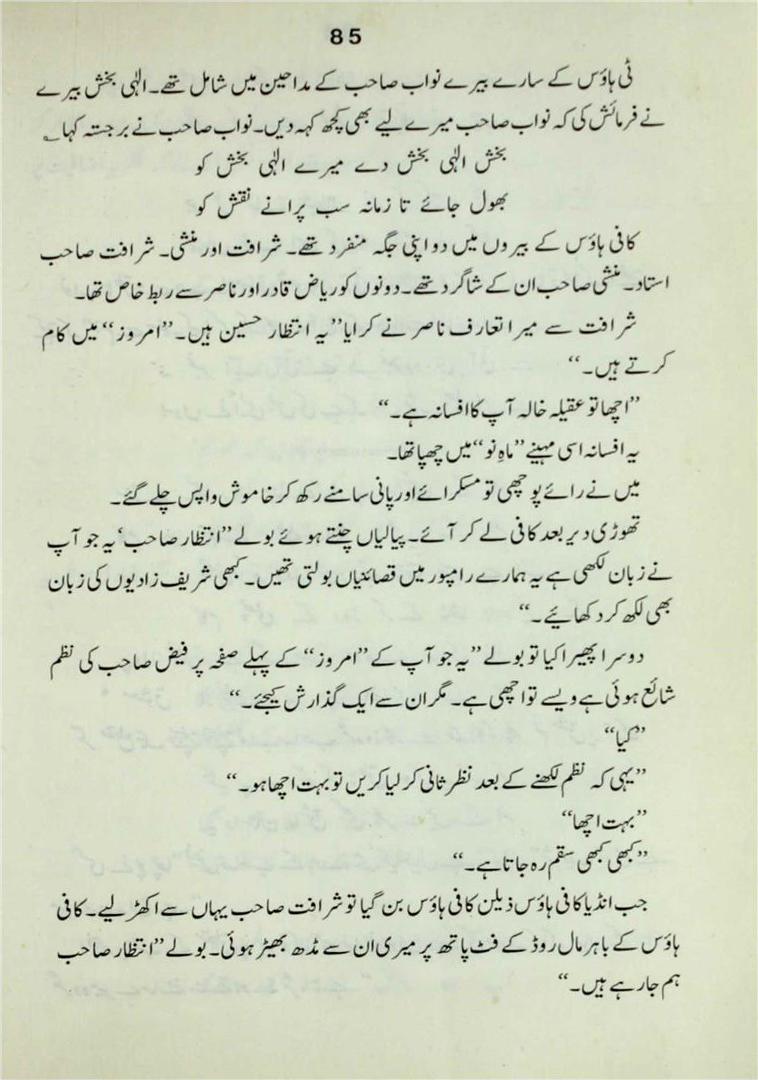 85
ٹی ہاؤس کے سارے بیرے نواب صاحب کے مداحین میں شامل تھے۔ الٰہی بخش بیرے
نے فرمائش کی کہ نواب صاحب میرے لیے بھی کچھ کہہ دیں۔ نواب صاحب نے برجستہ کہا ؎
بخش الٰہی بخش دے میرے الٰہی بخش کو
بھول جائے تا زمانہ سب پرانے نقش کو
کافی ہاؤس کے بیروں میں دو اپنی جگہ منفرد تھے۔ شرافت اور منشی۔ شرافت صاحب
استاد۔ منشی صاحب ان کے شاگرد تھے۔ دونوں کو ریاض قادر اور ناصر سے ربط خاص تھا۔
شرافت سے میرا تعارف ناصر نے کرایا ”یہ انتظار حسین ہیں۔ ”امروز“ میں کام
کرتے ہیں۔“
”اچھا تو عقیلہ خالہ آپ کا افسانہ ہے۔“
یہ افسانہ اسی مہینے ”ماہِ نو“ میں چھپا تھا۔
میں نے رائے پوچھی تو مسکرائے اور پانی سامنے رکھ کر خاموش واپس چلے گئے۔
تھوڑی دیر بعد کافی لے کر آئے۔ پیالیاں چنتے ہوئے بولے ”انتظار صاحب‘ یہ جو آپ
نے زبان لکھی ہے یہ ہمارے رامپور میں قصائنیاں بولتی تھیں۔ کبھی شریف زادیوں کی زبان
بھی لکھ کر دکھائیے۔“
دوسرا پھیرا کیا تو بولے ”یہ جو آپ کے ”امروز“ کے پہلے صفحہ پر فیض صاحب کی نظم
شائع ہوئی ہے ویسے تو اچھی ہے۔ مگر ان سے ایک گذارش کیجئے۔“
”کیا“
”یہی کہ نظم لکھنے کے بعد نظر ثانی کر لیا کریں تو بہت اچھا ہو۔“
”بہت اچھا“
”کبھی کبھی سقم رہ جاتا ہے۔“
جب انڈیا کافی ہاؤس ذیلن کافی ہاؤس بن گیا تو شرافت صاحب یہاں سے اکھڑ لیے۔ کافی
ہاؤس کے باہر مال روڈ کے فٹ پاتھ پر میری ان سے مڈھ بھیڑ ہوئی۔ بولے ”انتظار صاحب
ہم جا رہے ہیں۔“